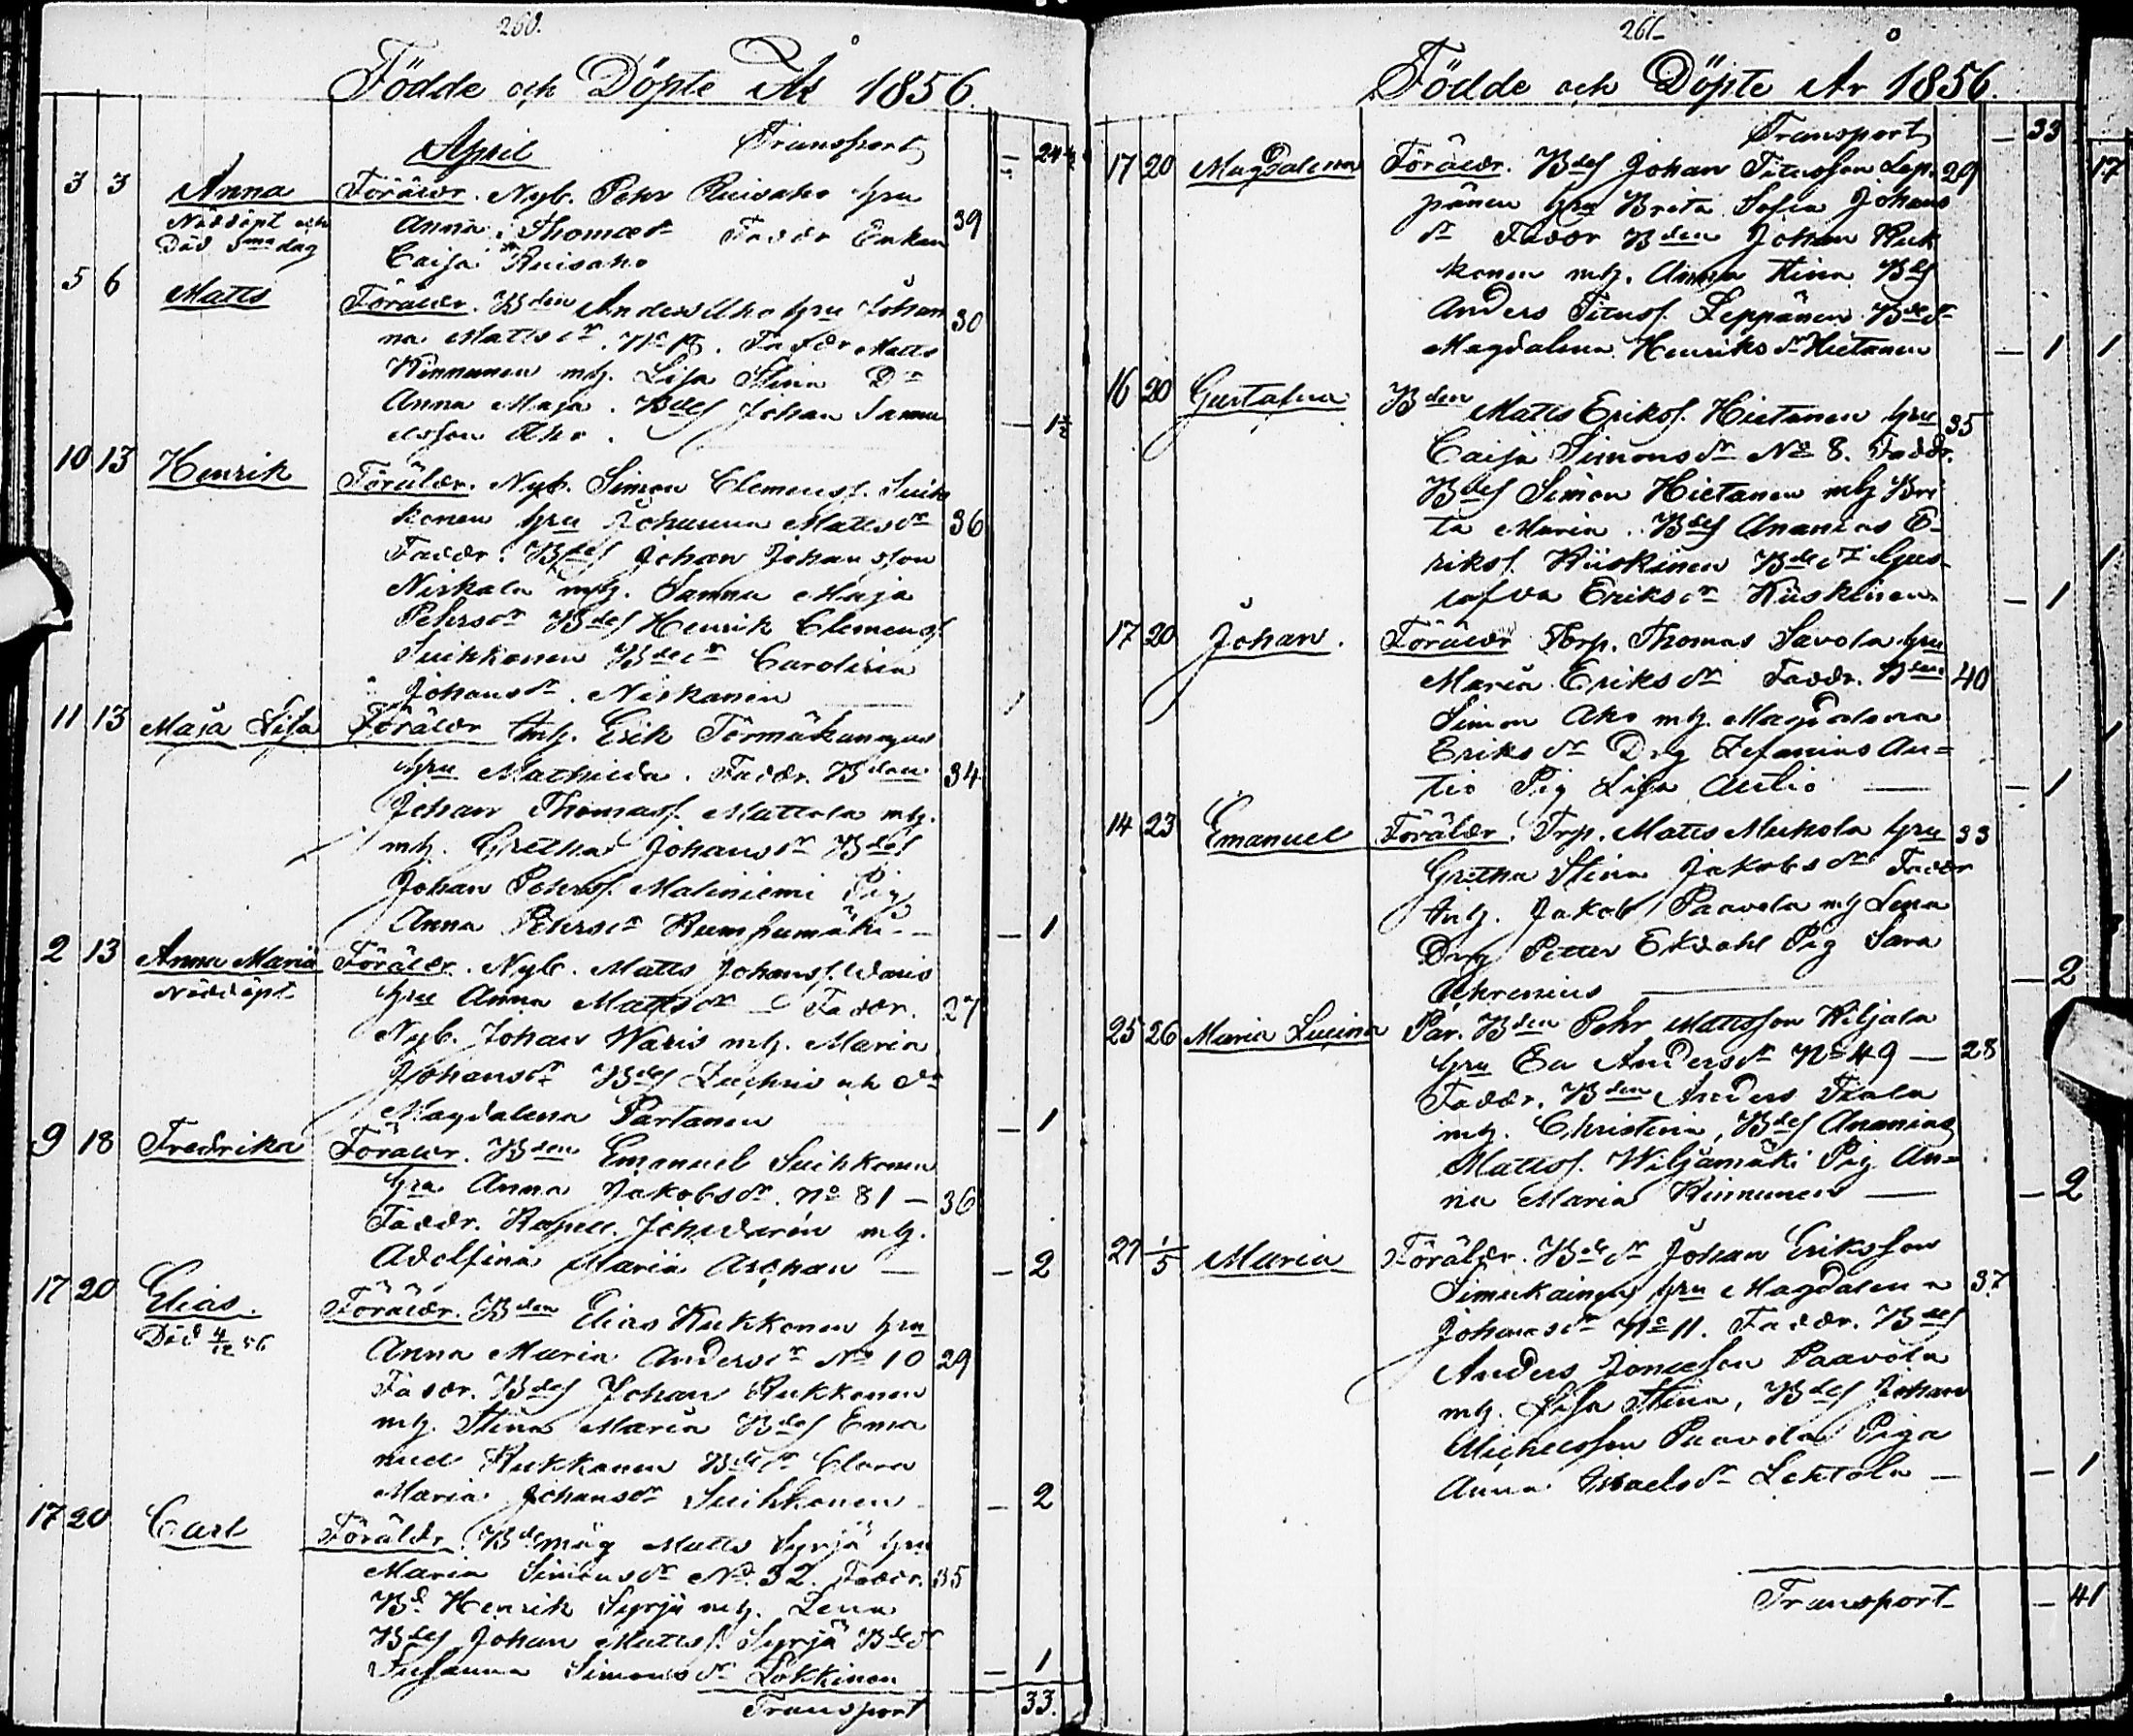 260.
Födde och Döpte År 1856.
April Transport 24½
3 3 Anna Föräldr. Nyb. Pehr Ruisaho hru
Nöddöpt och Anna Thomædr Faddr Enkan 39
Död s.ma dag Caisa Ruisaho
5 6 Matts Föräldr. Bden Anders Aho hru Johan 30
na Mattsdr. Faddr Matts
Kinnunen mh. Lisa Stina Dr
Anna Maja. Bdes Johan Samu
elsson Aho. – 1½
10 13 Henrik Föräldr. Nyb. Simon Clemenss. Suik
konen hru Johanna Mattsdr 36
Faddr. Bdes Johan Johansson
Niskala mh. Sanna Maja
Pehrsdr Bdes Henrik Clemenss.
Suikkonen Bdedr Carolina
Johansdr. Niskanen
11 13 Maja Lisa Föräldr Inh. Erik Törmäkangas
hru Mathilda. Faddr. Bden 34
Johan Thomass. Mattola mh.
mh. Gretha Johansdr Bdes
Johan Pehrss. Maliniemi Pig
Anna Pehrsdr Rumpumäki – 1
2 13 Anna Maria Föräldr. Nyb. Matts Johanss. Waris
Nöddöpt hru Anna Mattsdr – Faddr. 27
Nyb. Johan Waris mh. Maria
Johansdr Bdes Zachris och dr
Magdalena Partanen – 1
9 18 Fredrika Föräldr. Bden Emanuel Suikkonen
hru Anna Jakobsdr. No 81 – 36
Faddr. Kapell. Joh. mh.
Adolfina Maria Aschan – 2
17 20 Elias. Föräldr. Bden Elias Kukkonen hru
Död 4/12 56 Anna Maria Andersdr No 10 29
Faddr. Bdes Johan Kukkonen
mh. Stina Maria Bdes Ema
nuel Kukkonen Bdedr Clara
Maria Johansdr Suikkonen – 2
17 20 Carl Föräldr. Bdemåg Matts Syrjä hru
Maria Simonsdr No. 32. Faddr. 35
Bd. Henrik Syrjä mh. Lena
Bdes Johan Mattss. Syrjä Bdedr
Susanna Simonsdr Lokkinen – 1
Transport 33.
261
Födde och Döpte År 1856.
Transport – 33
17 20 Magdalena Föräldr. Bdes Johan Titusson Lep- 29
pänen hru Brita Sofia Johans
dr Faddr Bden Johan Kuk
konen mh. Anna Stina Bds
Anders Tituss. Leppänen Bdedr
Magdalena Henriksdr Hietanen – 1
16 20 Gustafva Bden Matts Erikss. Hietanen hru 35
Caisa Simonsdr No 8. Faddr.
Bdes Simon Hietanen mh Bri
ta Maria. Bdes Ananias E-
rikss. Kiiskinen Bdedr Gus-
tafva Eriksdr Kiiskinen – 1
17 20 Johan. Föräldr Torp. Thomas Savola hru
Maria Eriksdr Faddr. Bden 40
Simon Aho mh. Magdalena
Eriksdr Drg Zefanias Au=
tio Pig Lisa Autio – 1
14 23 Emanuel Föräldr. Trp. Matts Mukola hru 33
Gretha Stina Jakobsdr Faddr
Inh. Jakob Paavola mh Lena
Drg Petter Ekdahl Pig Sara
Ahrenius – 2
25 26 Maria Lusina Par. Bden Pehr Mattsson Wiljala
hru Eva Andersdr No 49 – 28
Faddr. Bden Anders Fiala
mh. Christina, Bdes Ananias
Mattss. Wiljamäki Pig An=
na Maria Kinnunen – 2
27 1/5 Maria Föräldr. Bdedr Johan Eriksson
Simukainen hru Magdalena 37
Johansdr No 11. Faddr. Bdes
Anders Jonasson Paavola
mh. Lisa Stina, Bdes Johan
Michelsson Paavola Piga
Anna Israelsdr Lehtola – 1
Transport – 41
17
1
1
1